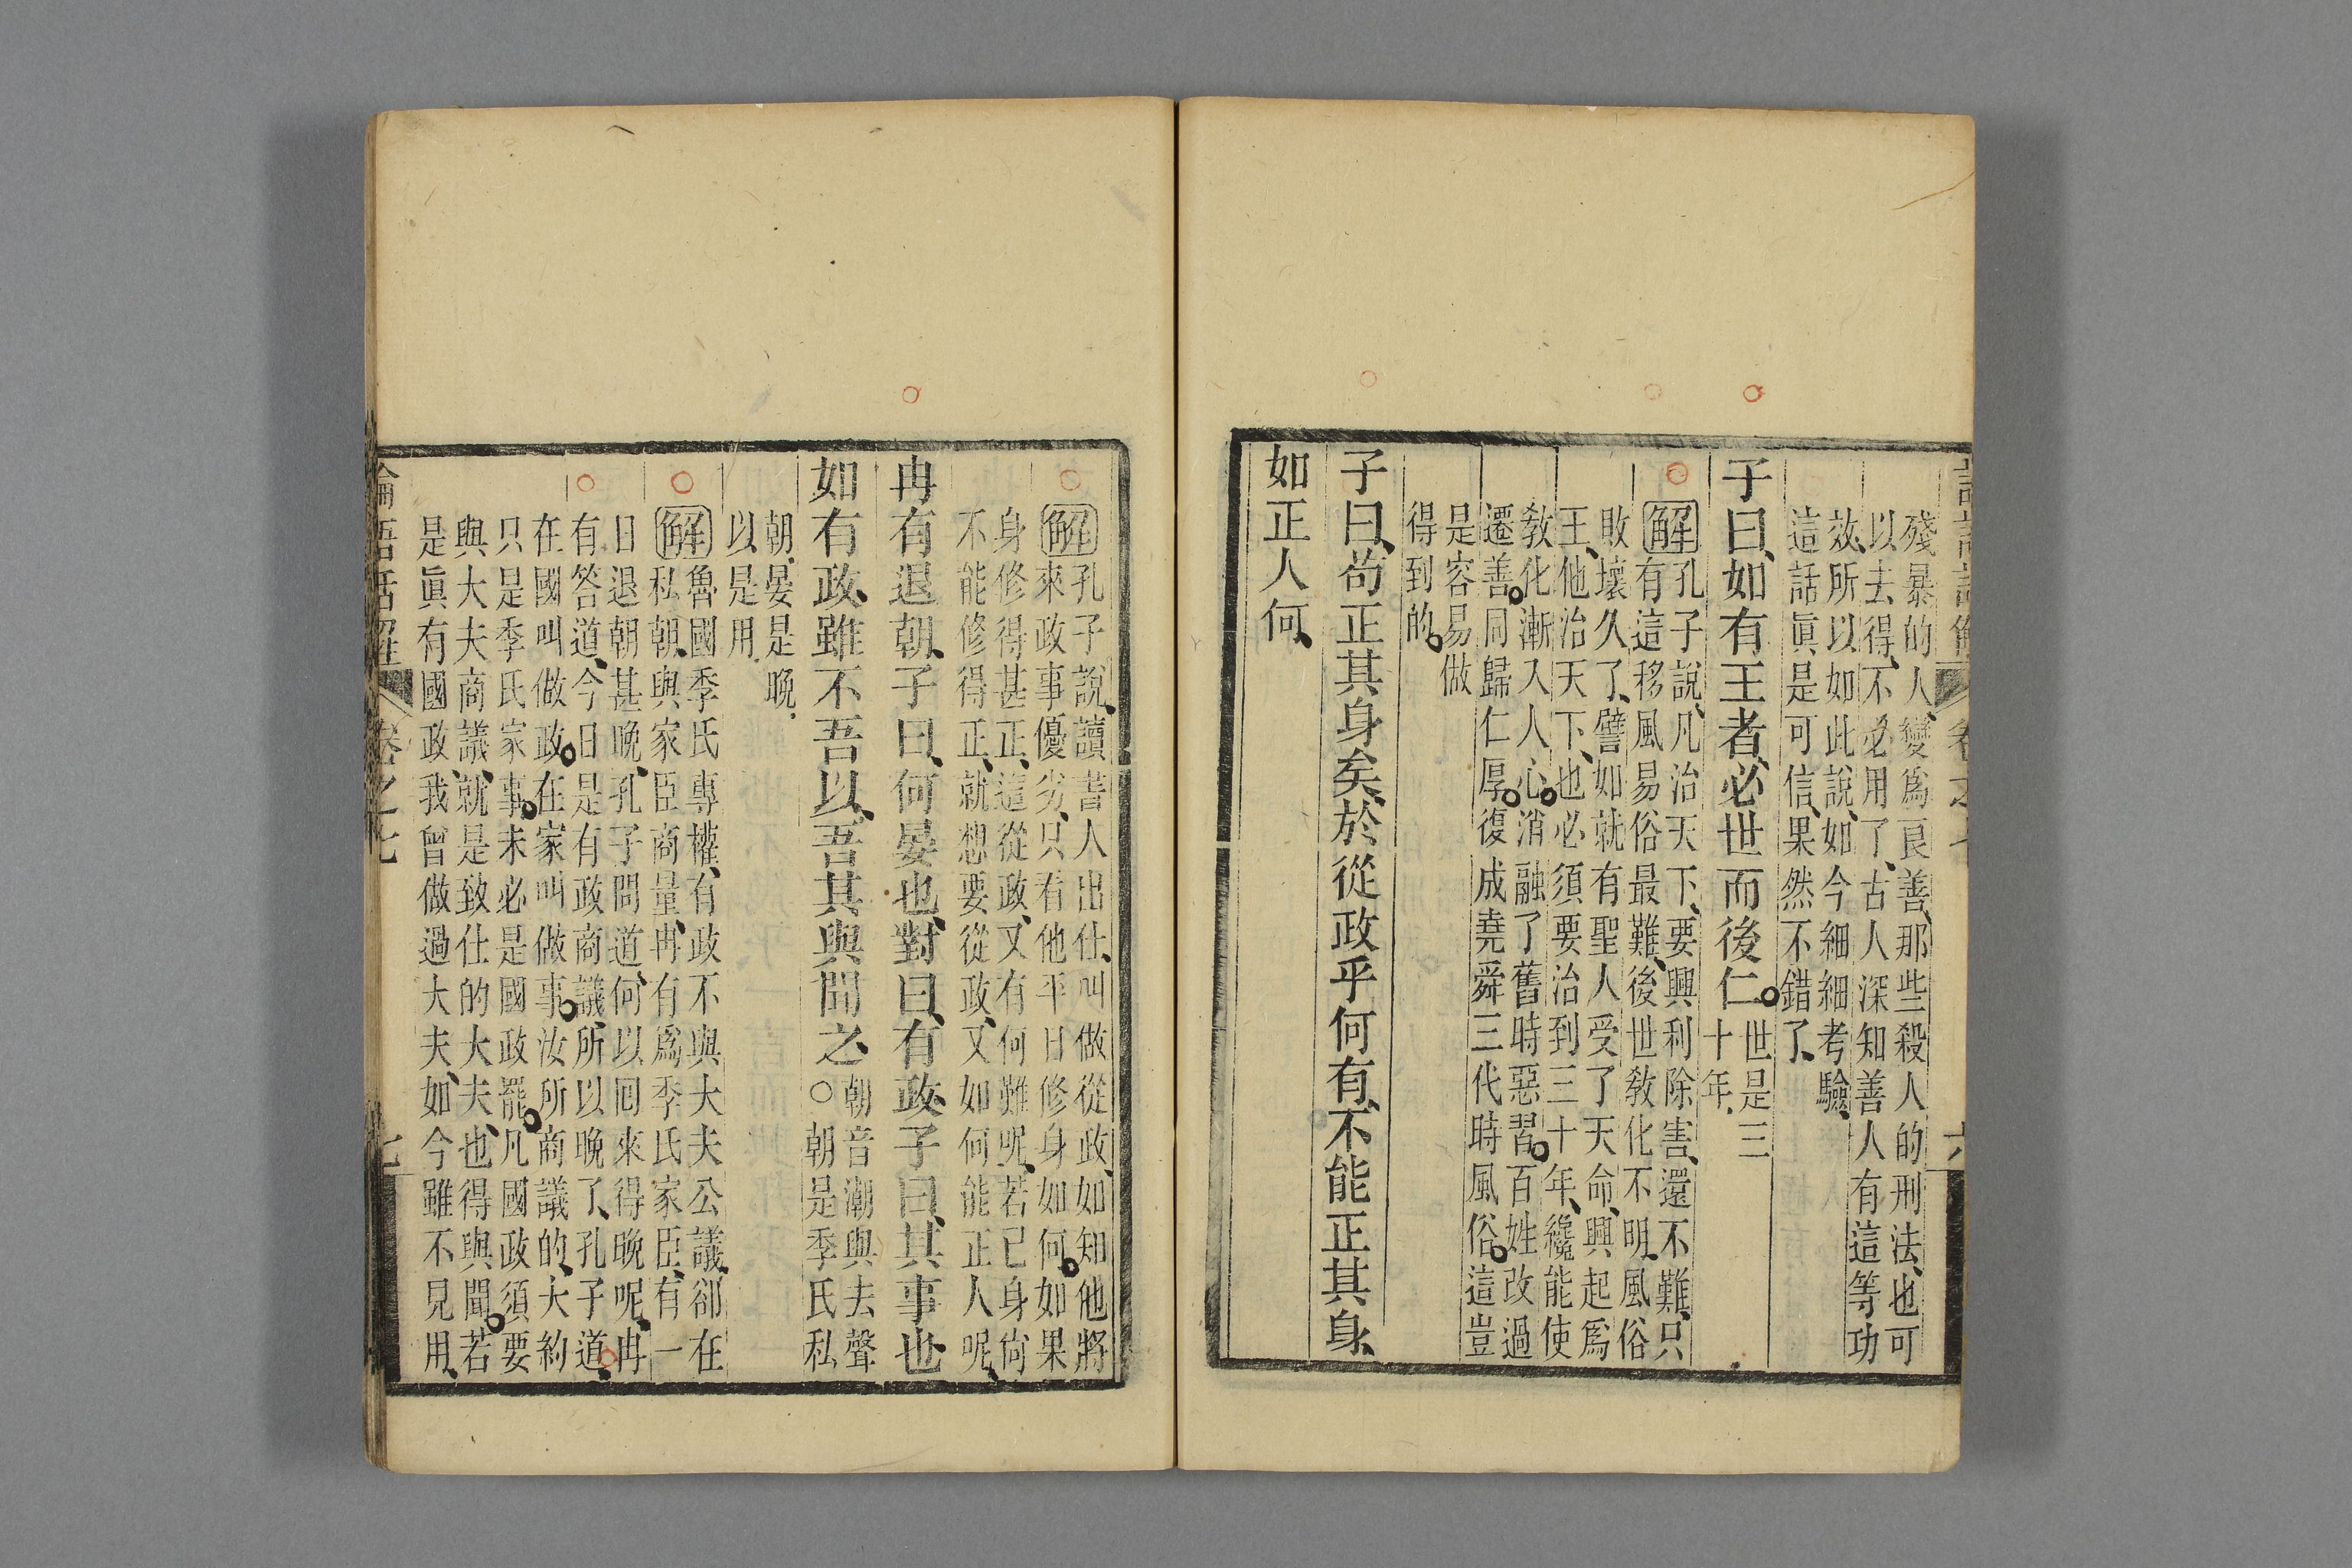 殘暴的人、變爲良善、那些殺人的刑法、也可
以去得、不必用了、古人深知善人有這等功
效、所以如此說、如今細細考驗、
這話眞是可信、果然不錯了、
子曰、如有王者、必世而後仁。世是三
十年、
解孔子說、凡治天下、要興利除害、還不難、只
有這移風易俗最難、後世敎化不明、風俗
敗壞久了、譬如就有聖人受了天命、興起爲
王、他治天下、也必須要治到三十年、纔能使
敎化漸入人心。消融了舊時惡習。百姓改過
遷善。同歸仁厚。復成堯舜三代時風俗。這豈
是容易做
得到的。
子曰、苟正其身矣、於從政乎何有、不能正其身、
如正人何、
解孔子說、讀書人出仕、叫做從政、如知他將
來政事優劣、只看他平日修身如何。如果
身修得甚正、這從政、又有何難呢、若己身尙
不能修得正、就想要從政、又如何能正人呢、
冉有退朝、子曰、何晏也、對曰、有政、子曰、其事也、
如有政、雖不吾以、吾其與聞之、○朝音潮與去聲
朝是季氏私
朝、晏是晚、
以是用、
解魯國季氏專權、有政不與大夫公議、卻在
私朝、與家臣商量、冉有爲季氏家臣、有一
日退朝甚晚、孔子問道、何以囘來得晚呢、冉
有答道、今日是有政商議、所以晚了、孔子道、
在國叫做政。在家叫做事。汝所商議的、大約
只是季氏家事。未必是國政罷。凡國政須要
與大夫商議、就是致仕的大夫、也得與聞。若
是眞有國政、我曾做過大夫、如今雖不見用、
論語話解 卷之七 七